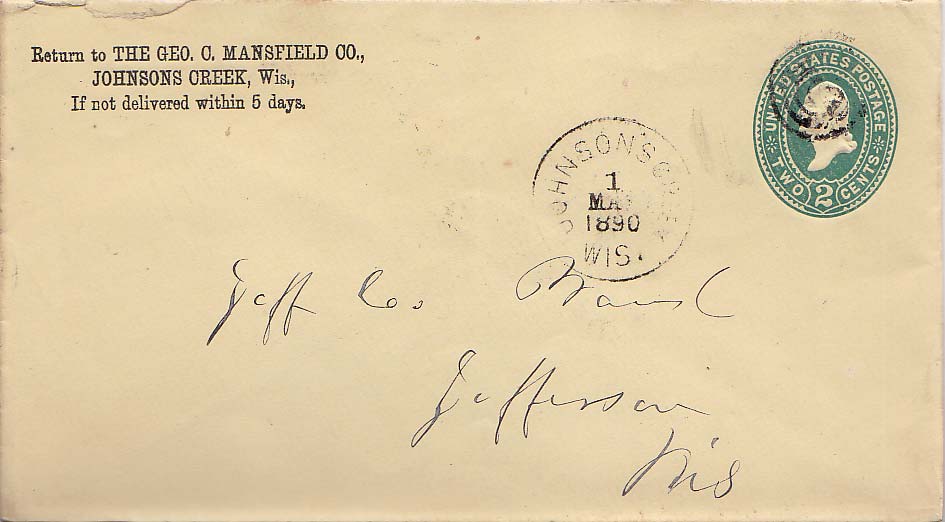 Return to THE GEO. C. MANSFIELD CO.,
JOHNSONS CREEK, Wis.,
If not delivered within 5 days.
UNITED STATES POSTAGE
TWO 2 CENTS
JOHNSON'S CREEK
1
MA
1890
WIS.
Jeff Co.
Jefferson
Wis